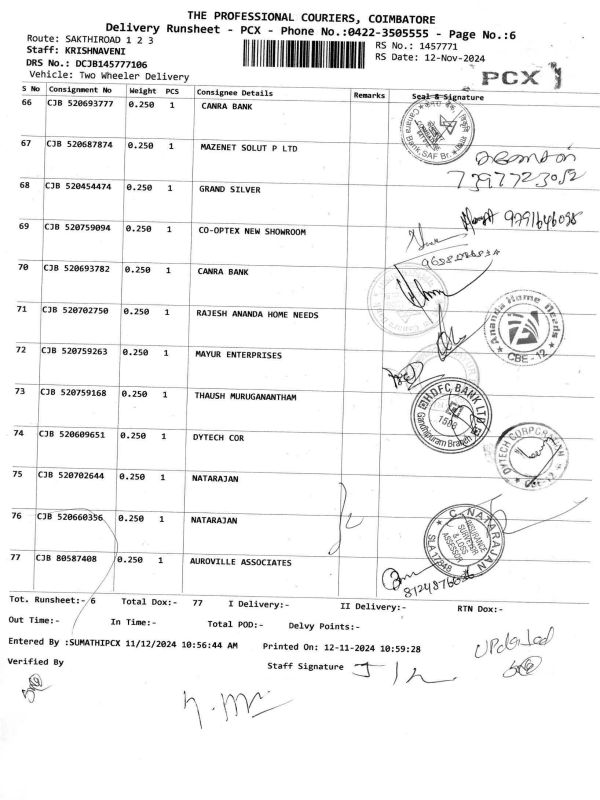 THE PROFESSIONAL COURIERS, COIMBATORE
Delivery Runsheet - PCX - Phone No.:0422-3505555 - Page No.:6
Route: SAKTHIROAD 1 2 3
RS No.: 1457771
Staff: KRISHNAVENI
RS Date: 12-Nov-2024
DRS No.: DCJB145777106
PCX 1
Vehicle: Two Wheeler Delivery
S No Consignment No Weight PCS Consignee Details Remarks Seal & Signature
66 CJB 520693777 0.250 1 CANRA BANK
Canara Bank SAF Br.
67 CJB 520687874 0.250 1 MAZENET SOLUT P LTD
7397723052
68 CJB 520454474 0.250 1 GRAND SILVER
9791646098
69 CJB 520759094 0.250 1 CO-OPTEX NEW SHOWROOM
70 CJB 520693782 0.250 1 CANRA BANK
71 CJB 520702750 0.250 1 RAJESH ANANDA HOME NEEDS
Ananda Home Needs
CBE - 12
72 CJB 520759263 0.250 1 MAYUR ENTERPRISES
73 CJB 520759168 0.250 1 THAUSH MURUGANANTHAM
HDFC BANK LTD
1588
Gandhipuram Branch
74 CJB 520609651 0.250 1 DYTECH COR
DYTECH CORPORATION
CBE-12
75 CJB 520702644 0.250 1 NATARAJAN
76 CJB 520660356 0.250 1 NATARAJAN
C. NATARAJAN
INSURANCE
SURVEYOR
& LOSS
ASSESSOR
SLA 17948
77 CJB 80587408 0.250 1 AUROVILLE ASSOCIATES
8124876036
Tot. Runsheet:- 6 Total Dox:- 77 I Delivery:- II Delivery:- RTN Dox:-
Out Time:- In Time:- Total POD:- Delvy Points:-
Entered By :SUMATHIPCX 11/12/2024 10:56:44 AM Printed On: 12-11-2024 10:59:28
Updated
Verified By Staff Signature